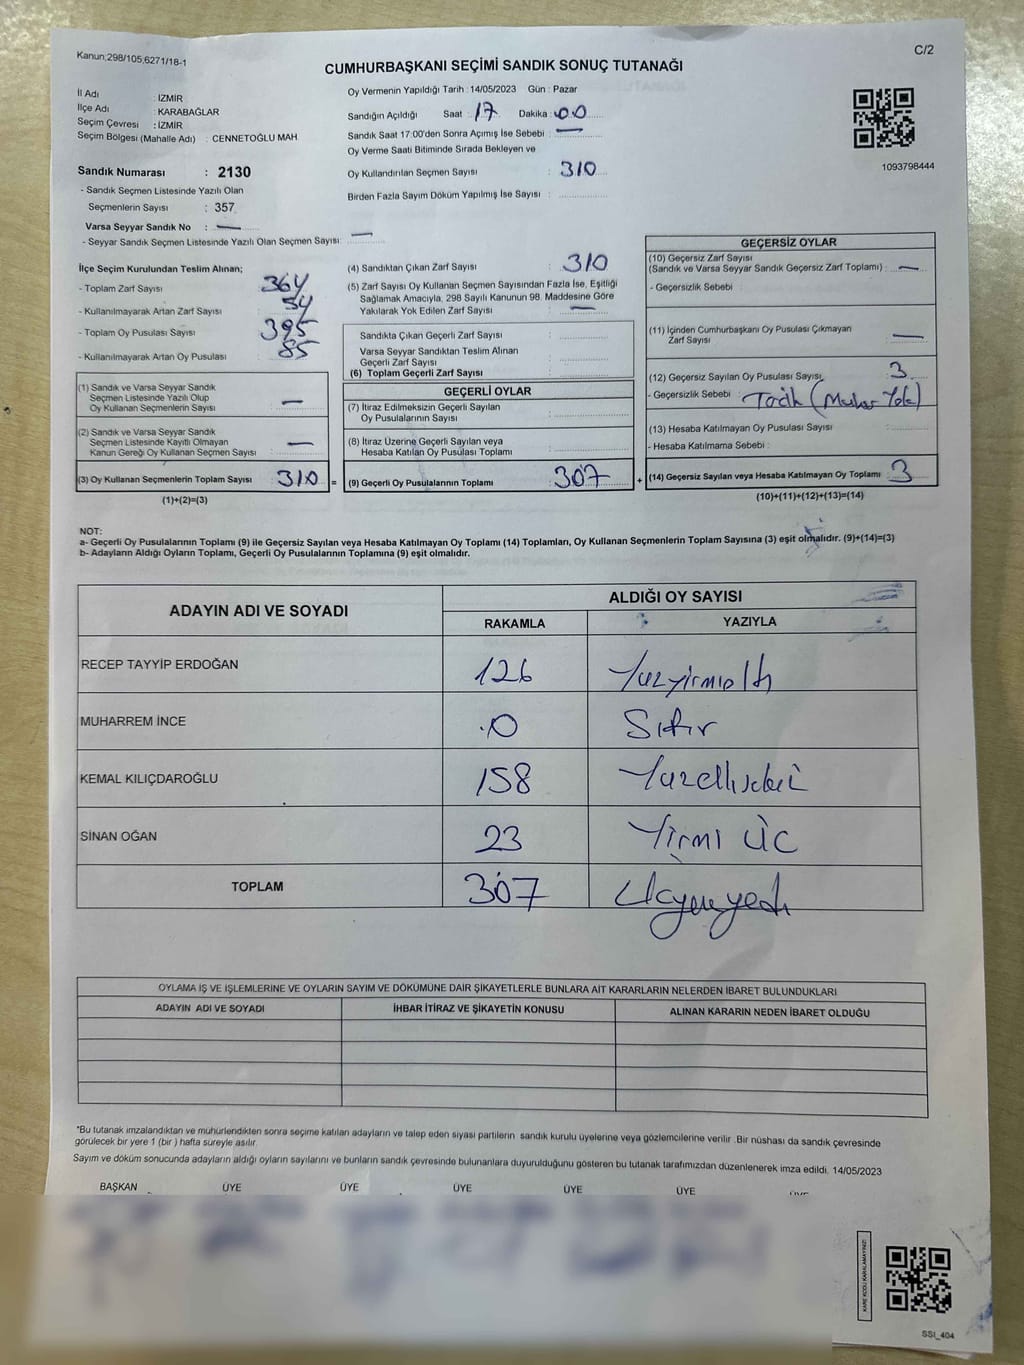 Kanun;298/105,6271/18-1
C/2
CUMHURBAŞKANI SEÇİMİ SANDIK SONUÇ TUTANAĞI
İl Adı : İZMİR
İlçe Adı : KARABAĞLAR
Seçim Çevresi : İZMİR
Seçim Bölgesi (Mahalle Adı) : CENNETOĞLU MAH
Sandık Numarası : 2130
- Sandık Seçmen Listesinde Yazılı Olan
Seçmenlerin Sayısı : 357
Varsa Seyyar Sandık No : —
- Seyyar Sandık Seçmen Listesinde Yazılı Olan Seçmen Sayısı: —
Oy Vermenin Yapıldığı Tarih : 14/05/2023 Gün : Pazar
Sandığın Açıldığı Saat : 17 Dakika : 00
Sandık Saat 17:00'den Sonra Açımış İse Sebebi : —
Oy Verme Saati Bitiminde Sırada Bekleyen ve
Oy Kullandırılan Seçmen Sayısı : 310
Birden Fazla Sayım Döküm Yapılmış İse Sayısı :
1093798444
İlçe Seçim Kurulundan Teslim Alınan;
- Toplam Zarf Sayısı : 364
- Kullanılmayarak Artan Zarf Sayısı : 54
- Toplam Oy Pusulası Sayısı : 395
- Kullanılmayarak Artan Oy Pusulası : 85
(1) Sandık ve Varsa Seyyar Sandık
Seçmen Listesinde Yazılı Olup
Oy Kullanan Seçmenlerin Sayısı : —
(2) Sandık ve Varsa Seyyar Sandık
Seçmen Listesinde Kayıtlı Olmayan
Kanun Gereği Oy Kullanan Seçmen Sayısı : —
(3) Oy Kullanan Seçmenlerin Toplam Sayısı : 310
(1)+(2)=(3)
(4) Sandıktan Çıkan Zarf Sayısı : 310
(5) Zarf Sayısı Oy Kullanan Seçmen Sayısından Fazla İse, Eşitliği
Sağlamak Amacıyla, 298 Sayılı Kanunun 98. Maddesine Göre
Yakılarak Yok Edilen Zarf Sayısı : —
Sandıkta Çıkan Geçerli Zarf Sayısı :
Varsa Seyyar Sandıktan Teslim Alınan
Geçerli Zarf Sayısı :
(6) Toplam Geçerli Zarf Sayısı :
GEÇERLİ OYLAR
(7) İtiraz Edilmeksizin Geçerli Sayılan
Oy Pusulalarının Sayısı :
(8) İtiraz Üzerine Geçerli Sayılan veya
Hesaba Katılan Oy Pusulası Toplamı :
= (9) Geçerli Oy Pusulalarının Toplamı : 307 +
GEÇERSİZ OYLAR
(10) Geçersiz Zarf Sayısı
(Sandık ve Varsa Seyyar Sandık Geçersiz Zarf Toplamı) : —
- Geçersizlik Sebebi :
(11) İçinden Cumhurbaşkanı Oy Pusulası Çıkmayan
Zarf Sayısı : —
(12) Geçersiz Sayılan Oy Pusulası Sayısı : 3
- Geçersizlik Sebebi :
(13) Hesaba Katılmayan Oy Pusulası Sayısı :
- Hesaba Katılmama Sebebi :
(14) Geçersiz Sayılan veya Hesaba Katılmayan Oy Toplamı : 3
(10)+(11)+(12)+(13)=(14)
NOT:
a- Geçerli Oy Pusulalarının Toplamı (9) ile Geçersiz Sayılan veya Hesaba Katılmayan Oy Toplamı (14) Toplamları, Oy Kullanan Seçmenlerin Toplam Sayısına (3) eşit olmalıdır. (9)+(14)=(3)
b- Adayların Aldığı Oyların Toplamı, Geçerli Oy Pusulalarının Toplamına (9) eşit olmalıdır.
ADAYIN ADI VE SOYADI
ALDIĞI OY SAYISI
RAKAMLA YAZIYLA
RECEP TAYYİP ERDOĞAN 126 Yüzyirmialtı
MUHARREM İNCE 0 Sıfır
KEMAL KILIÇDAROĞLU 158 Yüzellisekiz
SİNAN OĞAN 23 Yirmi Üç
TOPLAM 307 Üçyüzyedi
OYLAMA İŞ VE İŞLEMLERİNE VE OYLARIN SAYIM VE DÖKÜMÜNE DAİR ŞİKAYETLERLE BUNLARA AİT KARARLARIN NELERDEN İBARET BULUNDUKLARI
ADAYIN ADI VE SOYADI İHBAR İTİRAZ VE ŞİKAYETİN KONUSU ALINAN KARARIN NEDEN İBARET OLDUĞU
*Bu tutanak imzalandıktan ve mühürlendikten sonra seçime katılan adayların ve talep eden siyasi partilerin sandık kurulu üyelerine veya gözlemcilerine verilir .Bir nüshası da sandık çevresinde
görülecek bir yere 1 (bir ) hafta süreyle asılır.
Sayım ve döküm sonucunda adayların aldığı oyların sayılarını ve bunların sandık çevresinde bulunanlara duyurulduğunu gösteren bu tutanak tarafımızdan düzenlenerek imza edildi. 14/05/2023
BAŞKAN ÜYE ÜYE ÜYE ÜYE ÜYE
KARE KODU KARALAMAYINIZ!
SSI_404